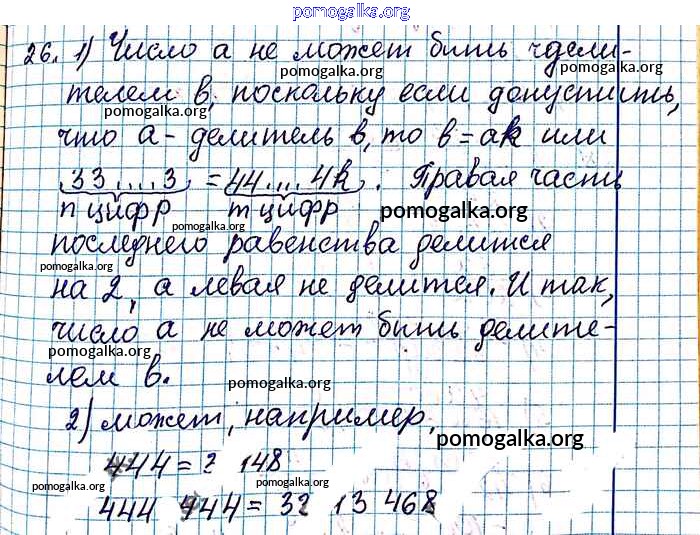 pomogalka.org
26. 1) Число а не может быть чдели-
pomogalka.org pomogalka.org
телем в, поскольку если допустить,
pomogalka.org
что а - делитель в, то в = ак или
33....3 = 44....4k. Правая часть
n цифр m цифр pomogalka.org
pomogalka.org
последнего равенства делится
pomogalka.org pomogalka.org
на 2, а левая не делится. И так,
число а не может быть делите-
pomogalka.org pomogalka.org
лем в.
pomogalka.org
2) может, например,
pomogalka.org
444 = 3 148
pomogalka.org pomogalka.org
444 444 = 33 13 468